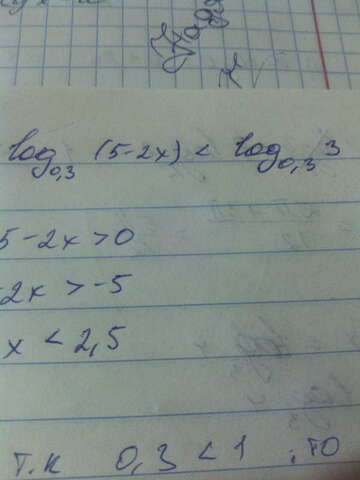 log₀,₃ (5-2x) < log₀,₃ 3
5-2x>0
-2x > -5
x < 2,5
т.к 0,3 < 1 , то